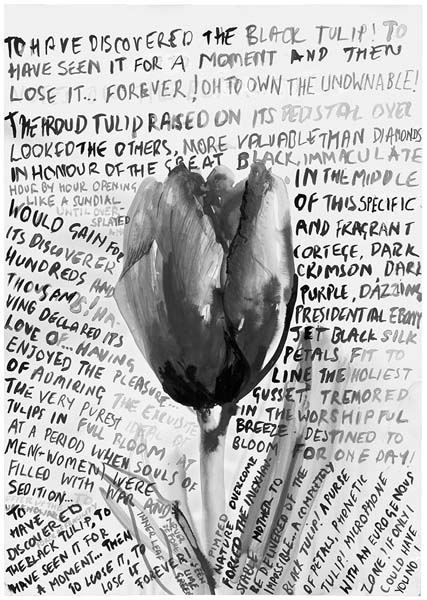 TO HAVE DISCOVERED THE BLACK TULIP! TO
HAVE SEEN IT FOR A MOMENT AND THEN
LOSE IT... FOREVER! OH TO OWN THE UNOWNABLE!
THE PROUD TULIP RAISED ON ITS PEDISTAL OVER
LOOKED THE OTHERS, MORE VALUABLE THAN DIAMONDS
IN HONOUR OF THE GREAT BLACK, IMMACULATE
HOUR BY HOUR OPENING
LIKE A SUNDIAL
UNTIL OVER
SPLAYED
WOULD GAIN FOR
ITS DISCOVERER
HUNDREDS AND
THOUSANDS! HA-
VING DECLARED ITS
LOVE OF... HAVING
ENJOYED THE PLEASURE...
OF ADMIRING THE EXQUISITE
THE VERY PUREST IDEAL OF
TULIPS IN FULL BLOOM. AT
AT A PERIOD WHEN SOULS OF
MEN(+WOMEN) WERE
FILLED WITH WAR AND
SEDITION...
TO
HAVE
DISCOVERED
THE BLACK TULIP, TO
HAVE SEEN IT FOR
A MOMENT... THEN
TO LOSE IT, TO
LOSE IT FOREVER
IN THE MIDDLE
OF THIS SPECIFIC
AND FRAGRANT
CORTEGE, DARK
CRIMSON, DARK
PURPLE, DAZZING
PRESIDENTIAL EBONY
JET BLACK SILK
PETALS FIT TO
LINE THE HOLIEST
GUSSET, TREMORED
IN THE WORSHIPFUL
BREEZE... DESTINED TO
BLOOM FOR ONE DAY!
OVERCOME
NATURE
FORCED THE
MOTHER TO
BE DELIVERED OF THE
IMPOSSIBLE. A COMPLETELY
BLACK TULIP! A PURSE
OF PETALS, PHONETIC
TULIP! MICROPHONE
WITH AN EUROGENOUS
ZONE! IF ONLY I
COULD HAVE
YOU NO!